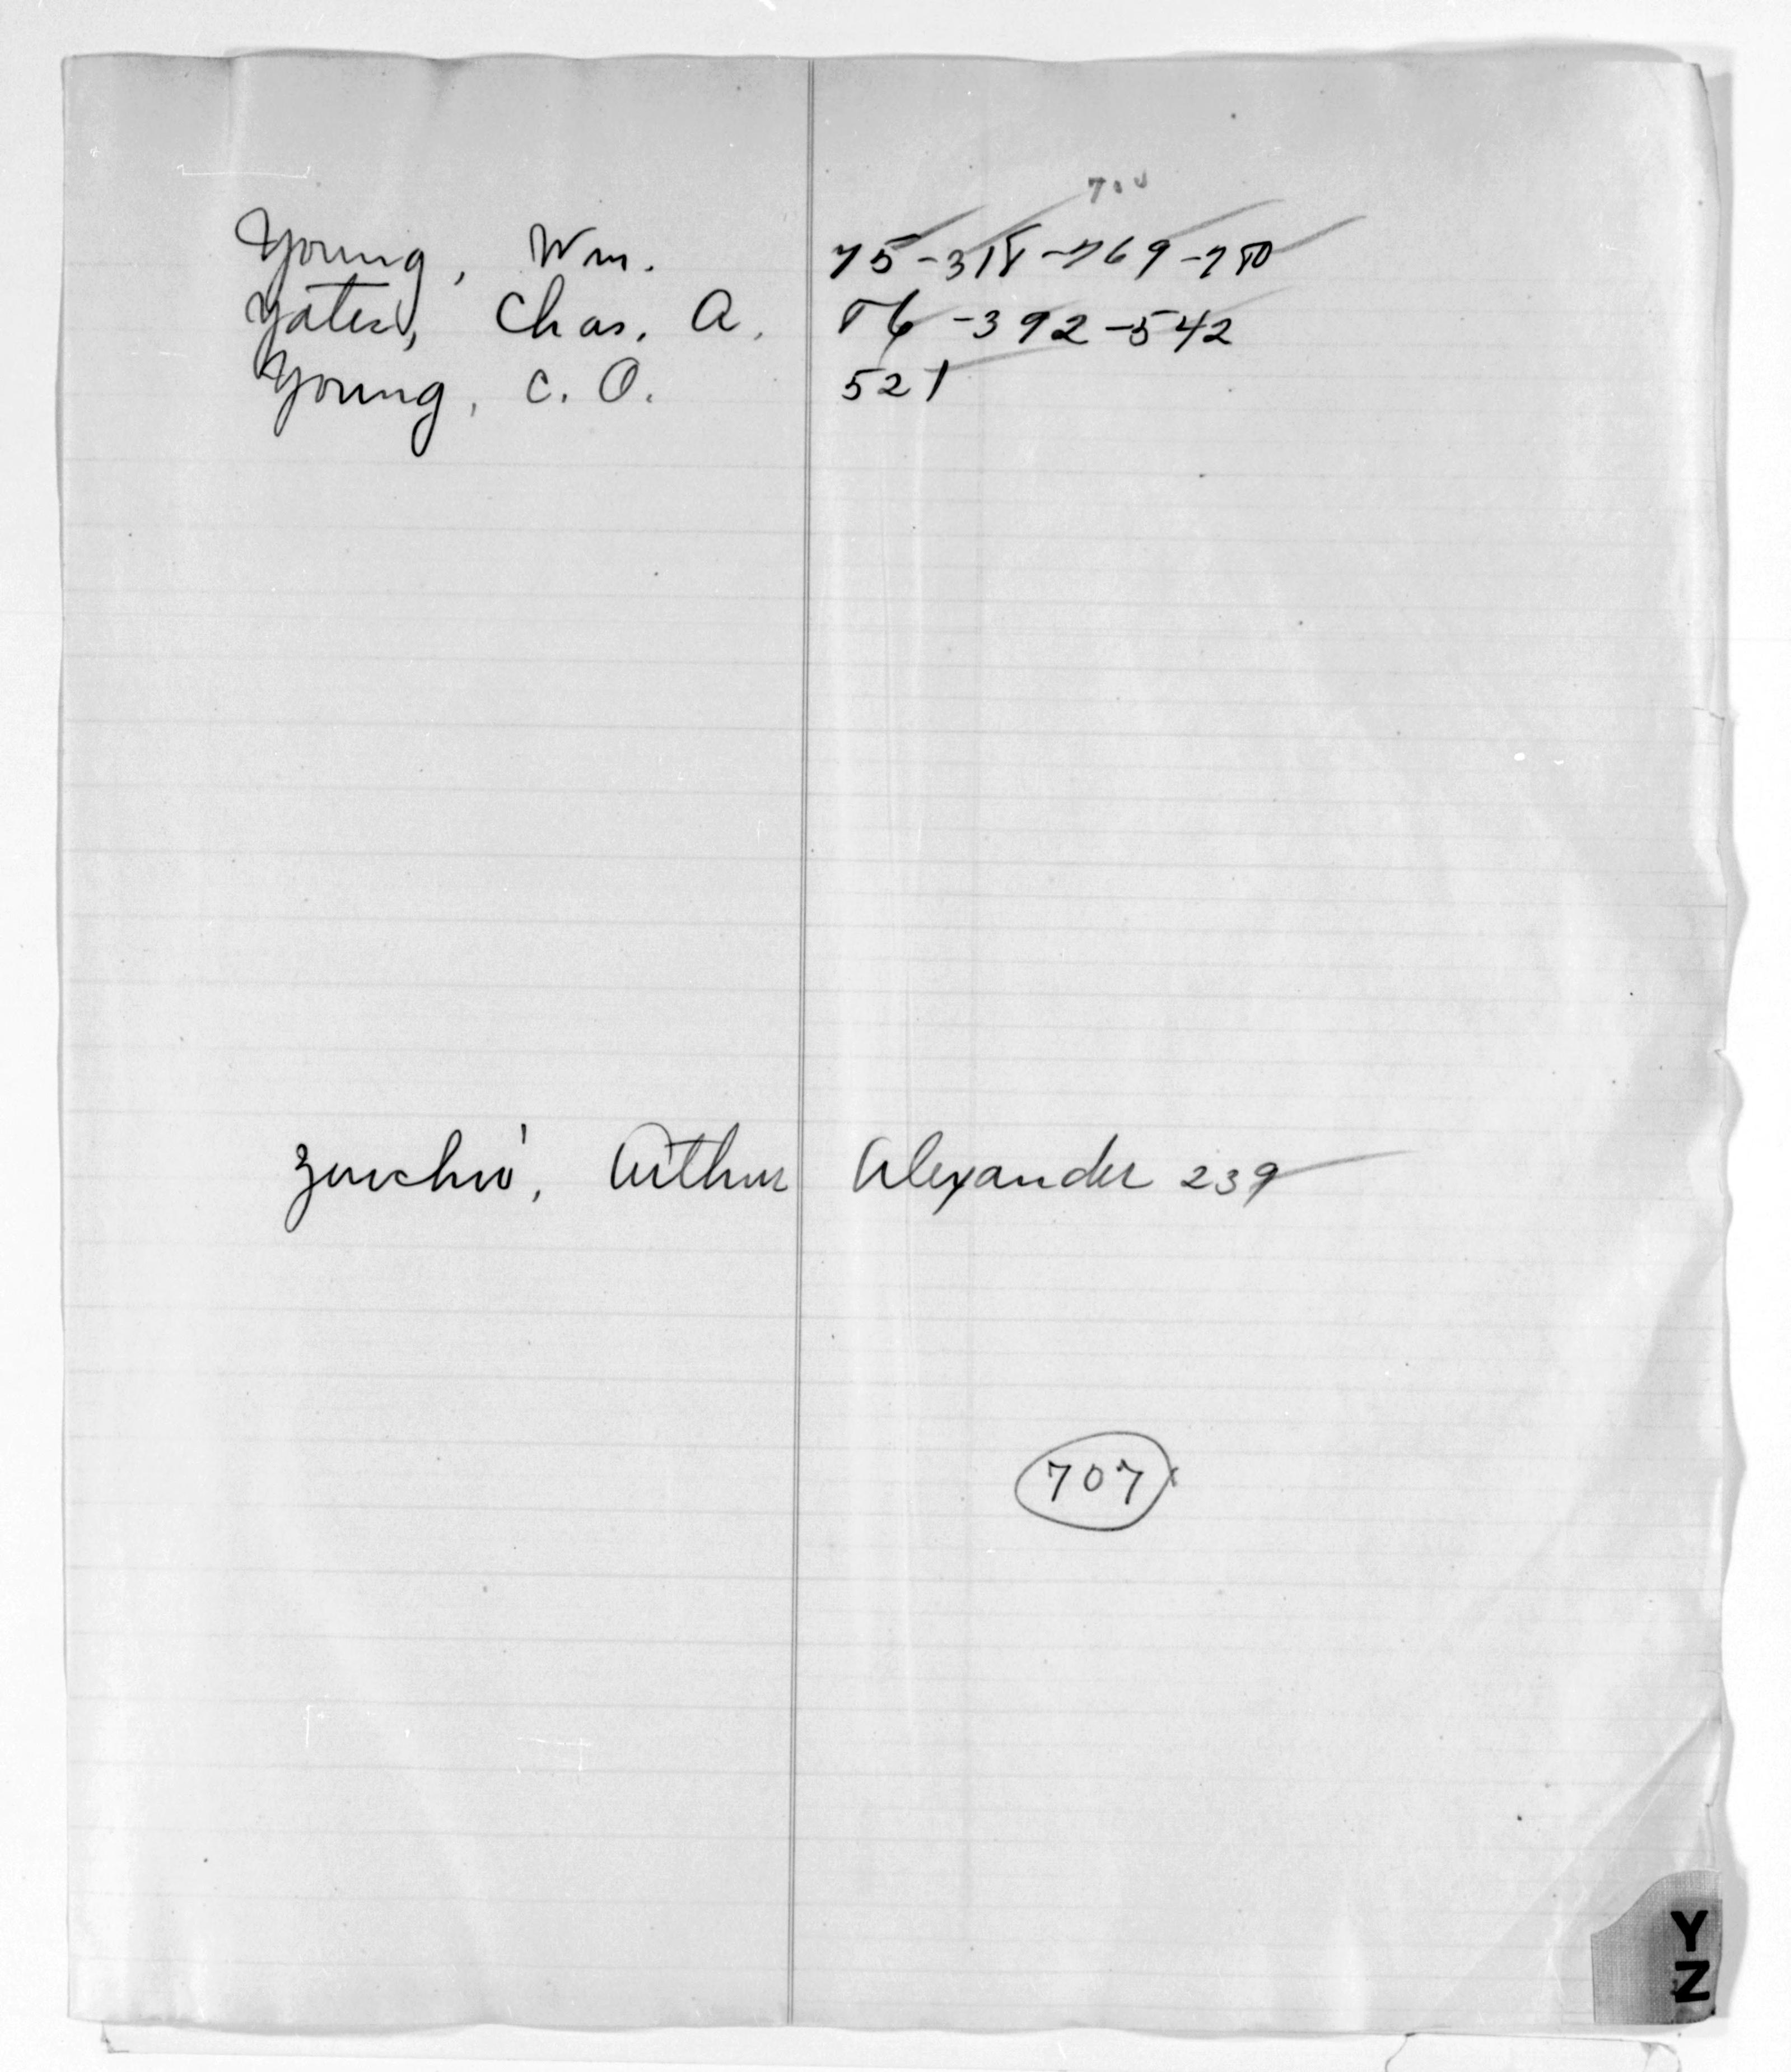 Young, Wm. 75-318-769-780
Yates, Chas. A. 86-392-542
Young, C. O. 521
Arthur Alexander 239
707
Y
Z